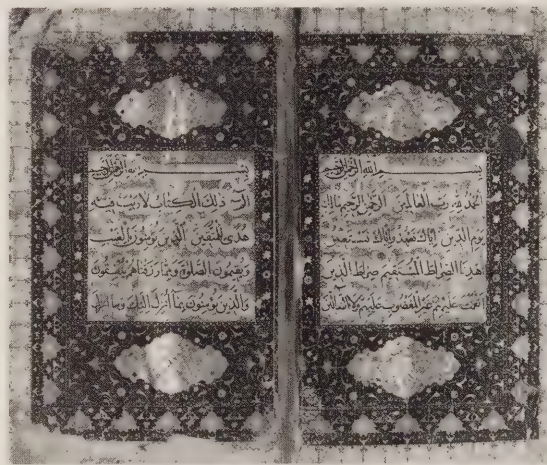 بسم الله الرحمن الرحيم
الحمد لله رب العالمين الرحمن الرحيم مالك
يوم الدين إياك نعبد وإياك نستعين
اهدنا الصراط المستقيم صراط الذين
أنعمت عليهم غير المغضوب عليهم ولا الضالين
بسم الله الرحمن الرحيم
الم ذلك الكتاب لا ريب فيه
هدى للمتقين الذين يؤمنون بالغيب
ويقيمون الصلوة ومما رزقناهم ينفقون
والذين يؤمنون بما أنزل إليك وما أنزل